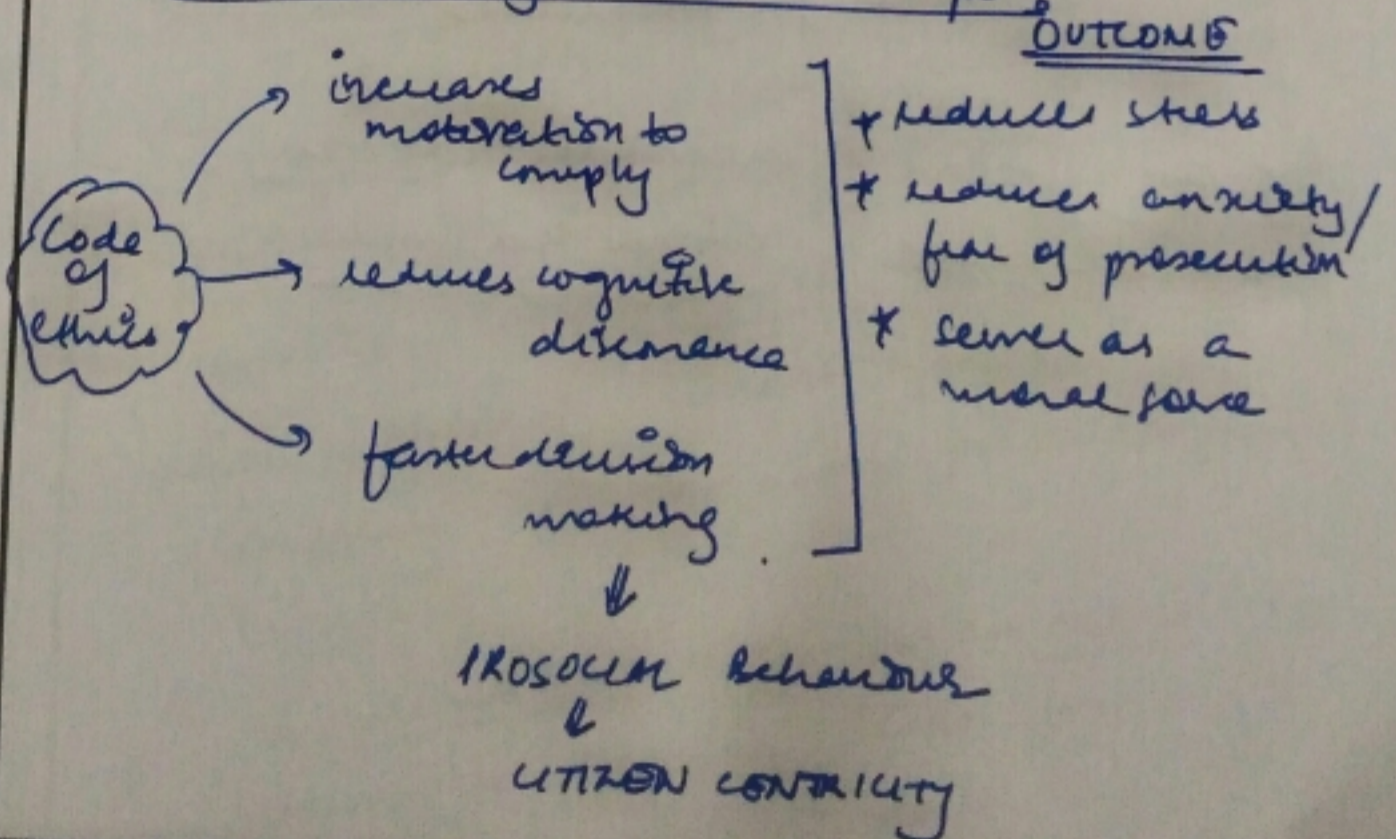 OUTCOME
increases
motivation to
comply
Code
of
ethics
reduces cognitive
dissonance
faster decision
making
* reduces stress
* reduces anxiety/
fear of prosecution
* serves as a
moral force
↓
PROSOCIAL Behaviour
↓
CITIZEN CENTRICITY